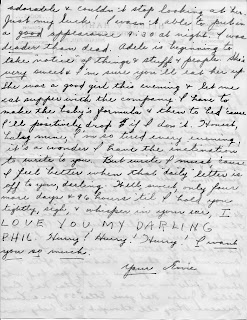 adorable & couldn't stop looking at her.
Just my luck! I wasn't able to put on
a good appearance 9:30 at night. I was
deader than dead. Adele is beginning to
take notice of things & stuff & people. She's
very sweet & I'm sure you'll eat her up.
She was a good girl this evening & let me
eat supper with the company. I have to
make the baby's formula & then to bed 'cause
I'll positively drop if I don't. Honest,
baby mine, I'm so tired every evening,
it's a wonder I have the inclination
to write to you. But write I must 'cause
I feel better when that daily letter is
off to you, darling. Well sweet, only four
more days & 96 hours 'til I hold you
tightly, sigh, & whisper in your ear, I
LOVE YOU MY DARLING
PHIL. Hurry! Hurry! Hurry! I want
you so much.
Your Evie